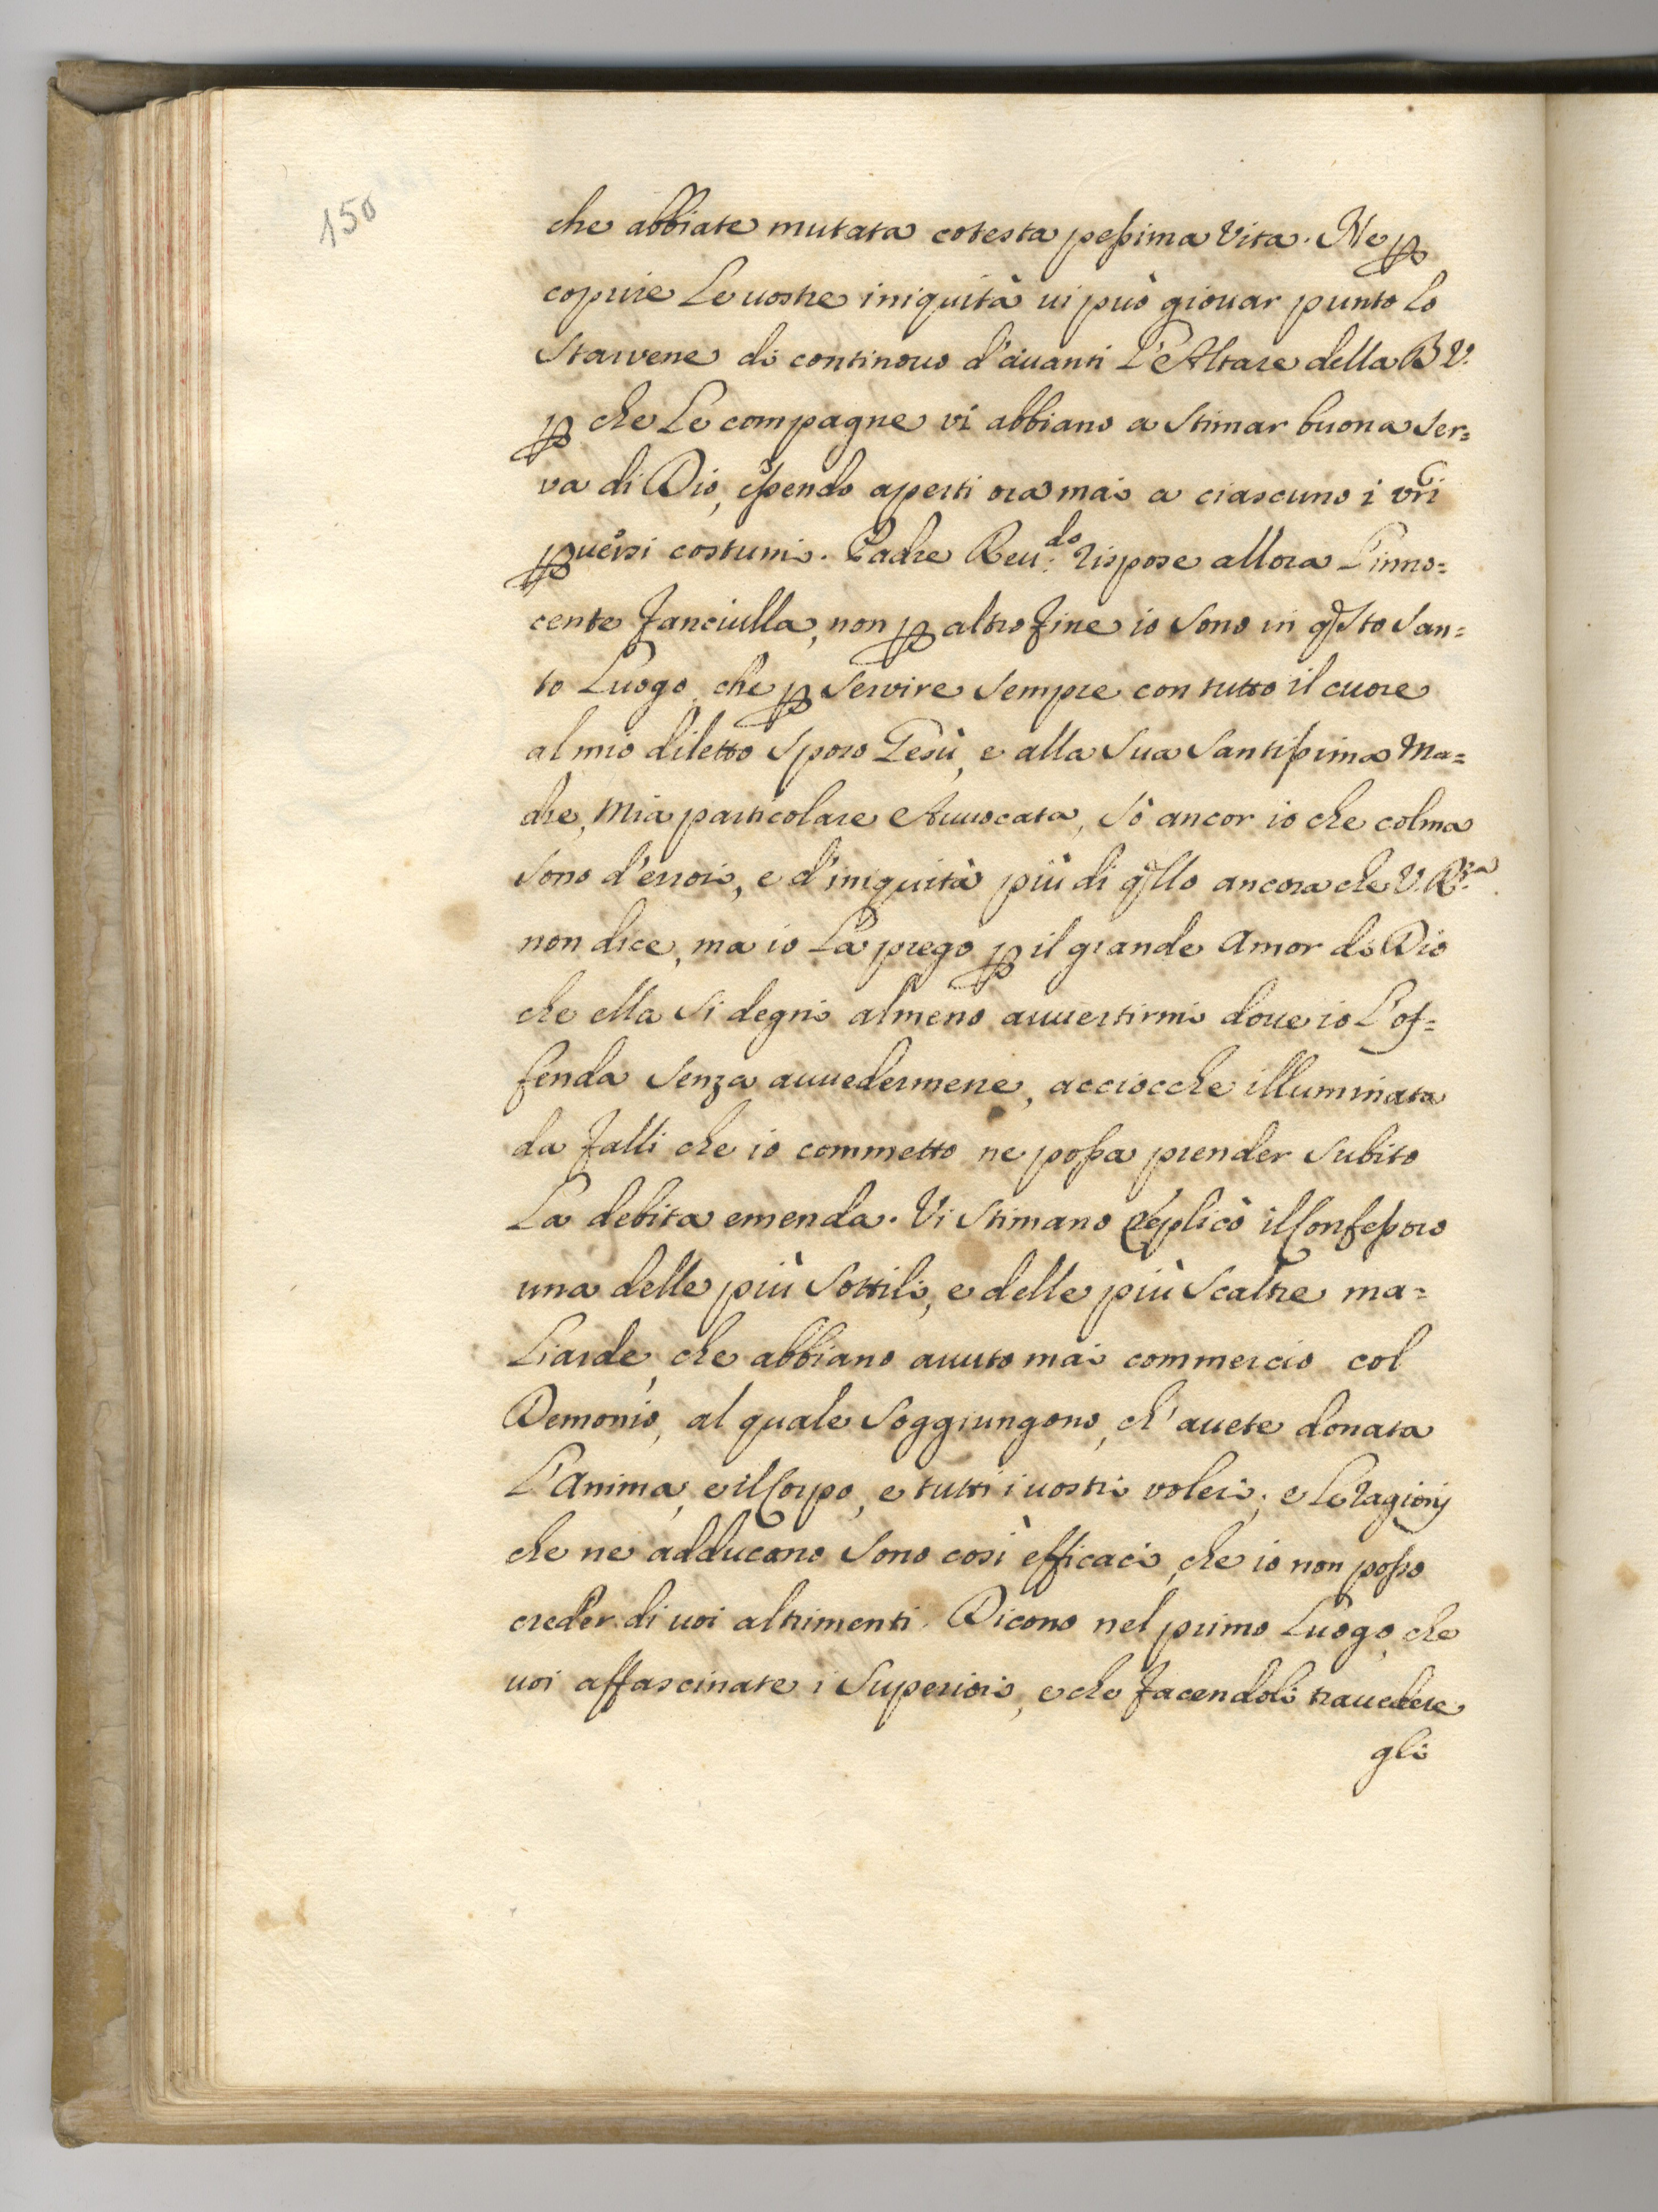 150
che abbiate mutata cotesta pessima Vita. Ne ꝑ
coprire Le uostre iniquità ui può giouar punto Lo
starvene di continouo d'auanti L'Altare della B V.
ꝑ che Le compagne vi abbiano a stimar buona Ser=
va di Dio, essendo aperti oramai a ciascuno i vr̃i
ꝑuersi costumi. Padre Reu:do rispose allora L'inno=
cente fanciulla, non ꝑ altro fine io sono in qsto San=
to Luogo, che ꝑ servire sempre con tutto il cuore
al mio diletto Sposo Gesù, e alla Sua Santissima Ma=
dre, Mia particolare Auuocata, Sò ancor io che colma
sono d'errori, e d'iniquità più di qllo ancora che V. R.za
non dice, ma io La prego ꝑ il grande Amor di Dio
che ella si degni almeno auuertirmi doue io L'of=
fenda senza auuedermene, acciocche illuminata
da falli che io commetto ne possa prender subito
La debita emenda. Vi stimano Replicò il Confessoro
una delle più Sottili, e delle più Scaltre ma=
Liarde, che abbiano auuto mai commercio col
Demonio, al quale Soggiungono, ch' auete donata
L'Anima, e il Corpo, e tutti i uostri voleri; e Le ragionj
che ne adducono Sono così efficaci, che io non posso
creder di uoi altrimenti. Dicono nel primo Luogo, che
uoi affascinate i Superiori, e che facendoli trauedere
gli